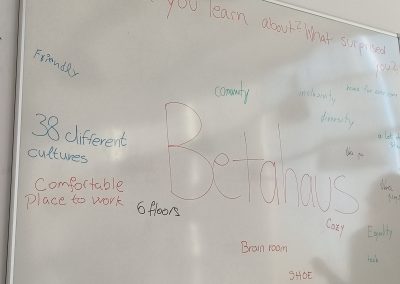 you learn about? What surprised
you?
Friendly
comunity
inclusivity
home for everyone
diversity
38 different
cultures
Betahaus
a lot of
Comfortable
Place to work
6 floors
Cozy
Equality
Brain room
SHOE